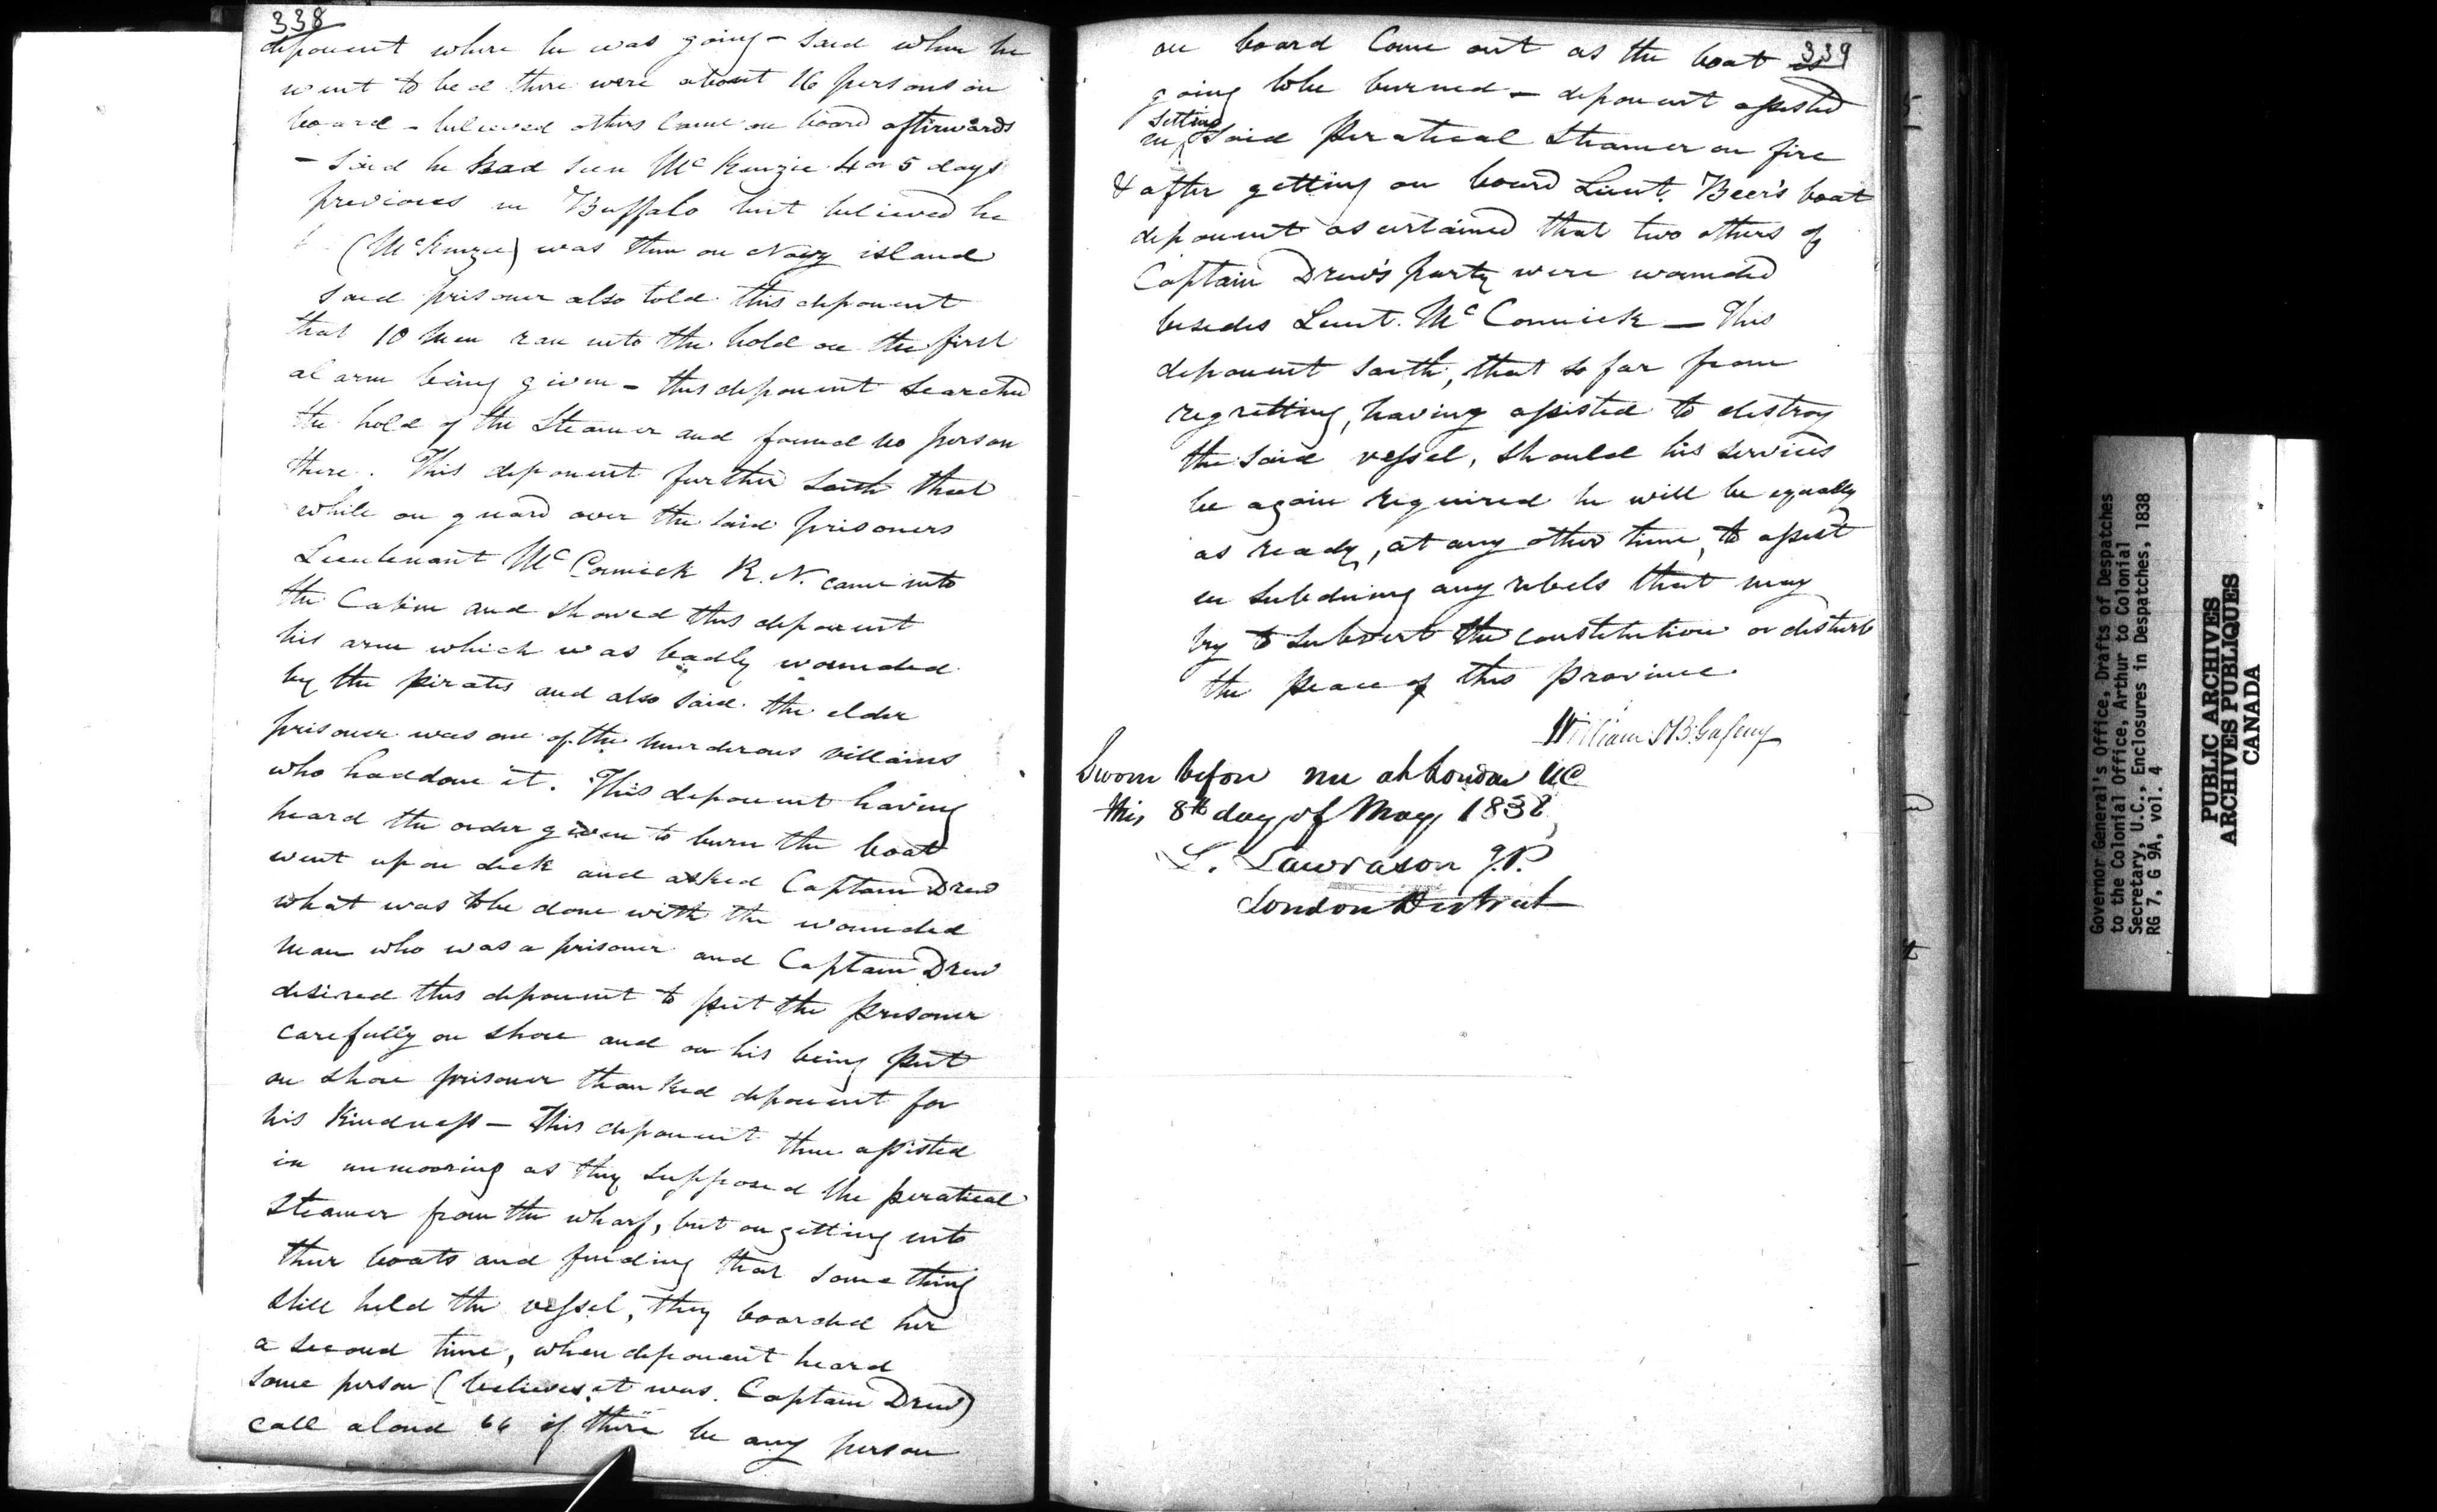 338
deponent where he was going – said when he
went to bed there were about 16 persons on
board – believed others came on board afterwards
– said he had seen McKenzie 4 or 5 days
previous in Buffalo but believed he
(McKenzie) was then on Navy island
said prisoner also told this deponent
that 10 men ran into the hold on the first
alarm being given – this deponent searched
the hold of the Steamer and found no person
there. This deponent further saith that
while on guard over the said prisoners
Lieutenant McCormick R.N. came into
the Cabin and showed this deponent
his arm which was badly wounded
by the pirates and also said the elder
prisoner was one of the murderous villains
who had done it. This deponent having
heard the order given to burn the boat
went up on deck and asked Captain Drew
what was to be done with the wounded
man who was a prisoner and Captain Drew
desired this deponent to put the prisoner
carefully on shore and on his being put
on shore prisoner thanked deponent for
his kindness – This deponent then assisted
in unmooring as they supposed the piratical
Steamer from the wharf, but on getting into
their boats and finding that something
still held the vessel, they boarded her
a second time, when deponent heard
some person (believes it was Captain Drew)
call aloud "if there be any person
339
on board come out as the boat is
going to be burned – deponent assisted
setting
in said piratical Steamer on fire
& after getting on board Lieut. Beer's boat
deponent ascertained that two others of
Captain Drew's party were wounded
besides Lieut. McCormick – This
deponent saith, that so far from
regretting, having assisted to destroy
the said vessel, should his services
be again required he will be equally
as ready, at any other time, to assist
in subduing any rebels that may
try to subvert the constitution or disturb
the peace of this province.
William
Sworn before me at London UC
this 8th day of May 1838
L. Lawrason J.P.
London District
Governor General's Office, Drafts of Despatches
to the Colonial Office, Arthur to Colonial
Secretary, U.C., Enclosures in Despatches, 1838
RG 7, G 9A, vol. 4
PUBLIC ARCHIVES
ARCHIVES PUBLIQUES
CANADA